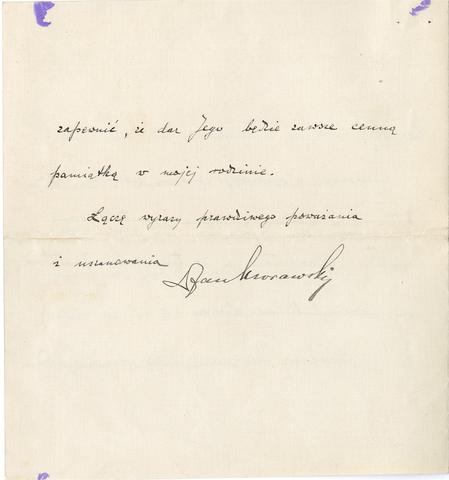 zapewnić, że dar Jego będzie zawsze cenną
pamiątką w mojej rodzinie.
Łączę wyrazy prawdziwego poważania
i uszanowania